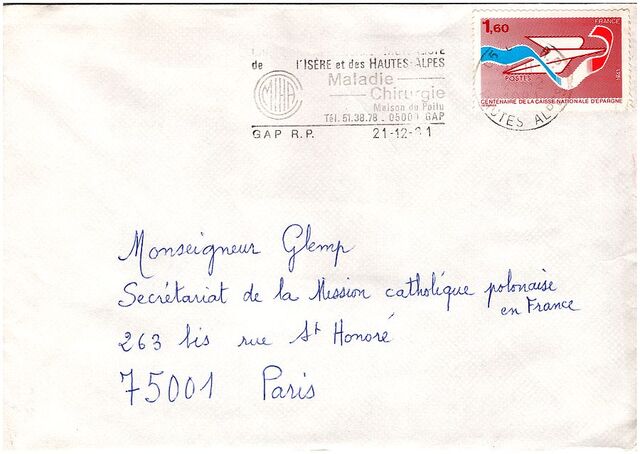 de l'ISÈRE et des HAUTES-ALPES
Maladie
Chirurgie
Maison du Poilu
Tél. 51.38.78 - 05000 GAP
GAP R.P. 21-12-81
1,60
FRANCE
POSTES
1981
CENTENAIRE DE LA CAISSE NATIONALE D'EPARGNE
Monseigneur Glemp
Secrétariat de la Mission catholique polonaise
en France
263 bis rue St Honoré
75001 Paris